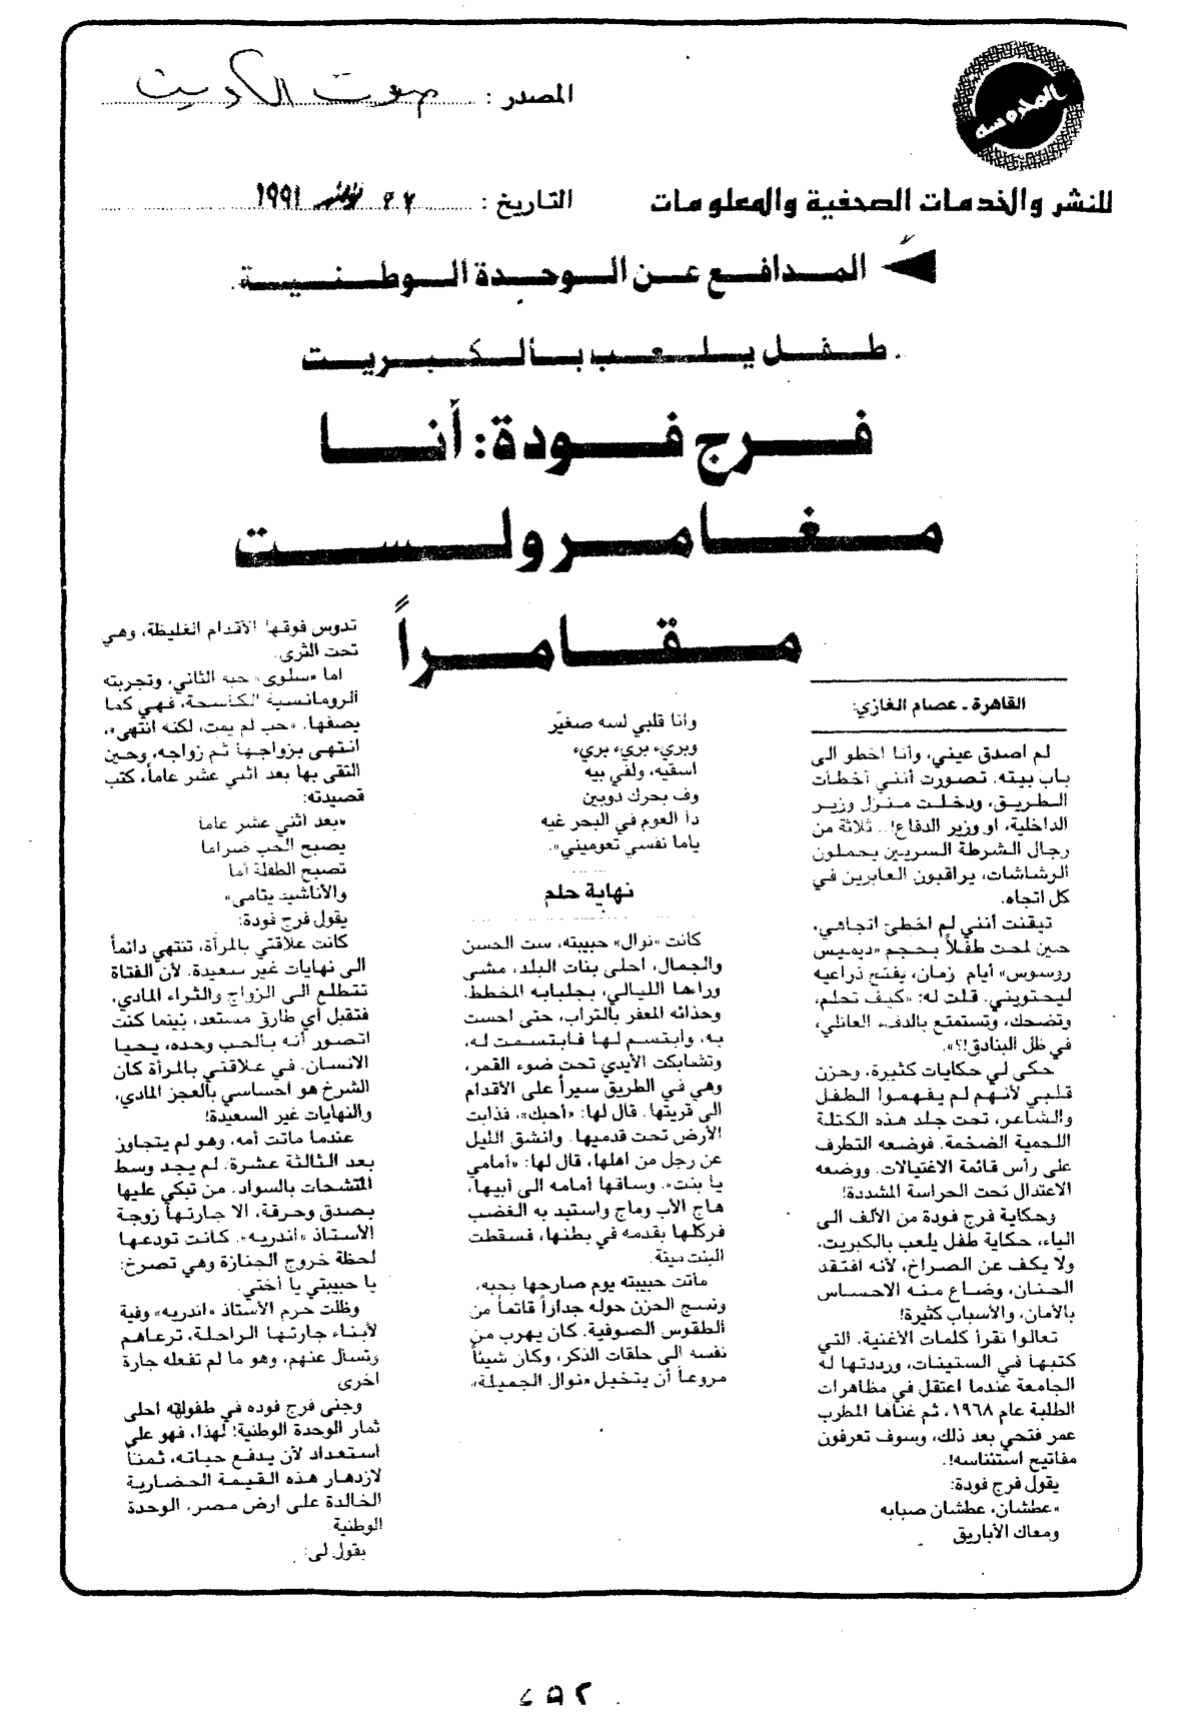 المحروسه
للنشر والخدمات الصحفية والمعلومات
المصدر : صوت الكويت
التاريخ : ٢٢ نوفمبر ١٩٩١
المدافع عن الوحدة الوطنية
طفل يلعب بالكبريت
فرج فودة: أنا
مغامر ولست
مقامراً
القاهرة ـ عصام الغازي:
لم اصدق عيني، وأنا اخطو الى
باب بيته. تصورت أنني أخطأت
الطريق، ودخلت منزل وزير
الداخلية، او وزير الدفاع!.. ثلاثة من
رجال الشرطة السريين يحملون
الرشاشات، يراقبون العابرين في
كل اتجاه.
تيقنت أنني لم اخطئ اتجاهي،
حين لمحت طفلاً بحجم «ديميس
روسوس» أيام زمان، يفتح ذراعيه
ليحتويني. قلت له: «كيف تحلم،
وتضحك، وتستمتع بالدفء العائلي،
في ظل البنادق!؟».
حكى لي حكايات كثيرة، وحزن
قلبي لأنهم لم يفهموا الطفل
والشاعر، تحت جلد هذه الكتلة
اللحمية الضخمة. فوضعه التطرف
على رأس قائمة الاغتيالات. ووضعه
الاعتدال تحت الحراسة المشددة!
وحكاية فرج فودة من الألف الى
الياء، حكاية طفل يلعب بالكبريت،
ولا يكف عن الصراخ، لأنه افتقد
الحنان، وضاع منه الاحساس
بالأمان، والأسباب كثيرة!
تعالوا نقرأ كلمات الأغنية. التي
كتبها في الستينات، ورددتها له
الجامعة عندما اعتقل في مظاهرات
الطلبة عام ١٩٦٨، ثم غناها المطرب
عمر فتحي بعد ذلك، وسوف تعرفون
مفاتيح استئناسه!.
يقول فرج فودة:
«عطشان، عطشان صبابه
ومعاك الأباريق
وانا قلبي لسه صغيّر
وبريء بريء بريء
اسقيه، ولفي بيه
وف بحرك دوبين
دا العوم في البحر غيه
ياما نفسي تعوميني».
نهاية حلم
كانت «نوال» حبيبته، ست الحسن
والجمال، احلى بنات البلد، مشى
وراءها الليالي، بجلبابه المخطط.
وحذائه المعفر بالتراب، حتى احست
به، وابتسم لها فابتسمت له،
وتشابكت الأيدي تحت ضوء القمر،
وهي في الطريق سيراً على الأقدام
الى قريتها. قال لها: «أحبك»، فذابت
الأرض تحت قدميها. وانشق الليل
عن رجل من اهلها، قال لها: «أمامي
يا بنت». وساقها أمامه الى أبيها،
هاج الأب وماج واستبد به الغضب
فركلها بقدمه في بطنها، فسقطت
البنت ميتة.
ماتت حبيبته يوم صارحها بحبه،
ونسج الحزن حوله جداراً قاتماً من
الطقوس الصوفية. كان يهرب من
نفسه الى حلقات الذكر، وكان شيئاً
مروعاً أن يتخيل «نوال الجميلة»
تدوس فوقها الأقدام الغليظة، وهي
تحت الثرى.
اما «سلوى» حبه الثاني، وتجربته
الرومانسية الكاسحة، فهي كما
يصفها. «حب لم يمت، لكنه انتهى»،
انتهى بزواجها ثم زواجه، وحين
التقى بها بعد اثني عشر عاماً، كتب
قصيدته:
«بعد اثني عشر عاما
يصبح الحب ضراما
تصبح الطفلة أما
والأناشيد يتامى»
يقول فرج فودة:
كانت علاقتي بالمرأة، تنتهي دائماً
الى نهايات غير سعيدة. لأن الفتاة
تتطلع الى الزواج والثراء المادي،
فتقبل أي طارق مستعد، بينما كنت
اتصور أنه بالحب وحده، يحيا
الانسان. في علاقتي بالمرأة كان
الشرخ هو احساسي بالعجز المادي،
والنهايات غير السعيدة!
عندما ماتت أمه، وهو لم يتجاوز
بعد الثالثة عشرة. لم يجد وسط
المتشحات بالسواد. من تبكي عليها
بصدق وحرقة، الا جارتها زوجة
الأستاذ «اندريه». كانت تودعها
لحظة خروج الجنازة وهي تصرخ:
يا حبيبتي يا أختي.
وظلت حرم الأستاذ «اندريه» وفية
لأبناء جارتها الراحلة، ترعاهم
وتسأل عنهم، وهو ما لم تفعله جارة
اخرى
وجنى فرج فوده في طفولته احلى
ثمار الوحدة الوطنية؛ لهذا، فهو على
استعداد لأن يدفع حياته، ثمناً
لازدهار هذه القيمة الحضارية
الخالدة على ارض مصر، الوحدة
الوطنية
يقول لي: